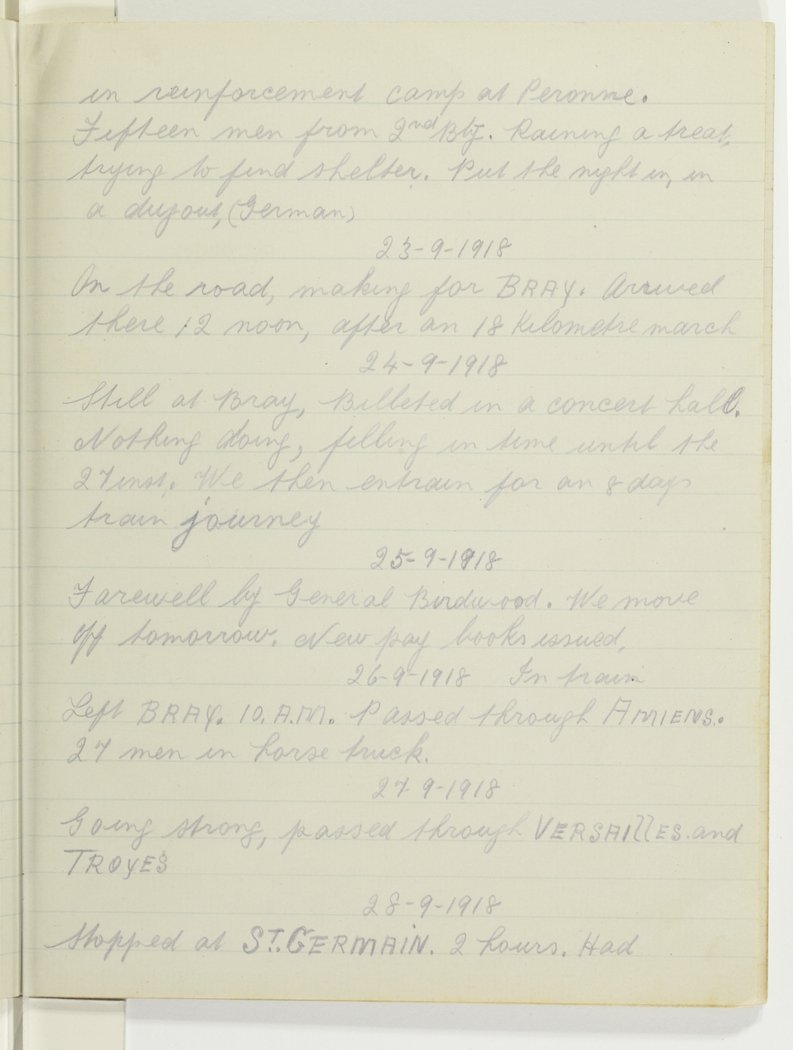 in reinforcement camp at Peronne.
Fifteen men from 2nd Bty. Raining a treat,
trying to find shelter. Put the night in, in
a dugout, (German)
23-9-1918
On the road, making for BRAY. Arrived
there 12 noon, after an 18 Kilometre march
24-9-1918
Still at Bray, Billeted in a concert hall.
Nothing doing, filling in time until the
27 inst. We then entrain for an 8 days
train journey
25-9-1918
Farewell by General Birdwood. We move
off tomorrow. New pay books issued,
26-9-1918 In train
Left BRAY. 10. A.M. Passed through AMIENS.
27 men in horse truck.
27 9-1918
Going strong, passed through VERSAILLES and
TROYES
28-9-1918
Stopped at ST. GERMAIN. 2 hours. Had